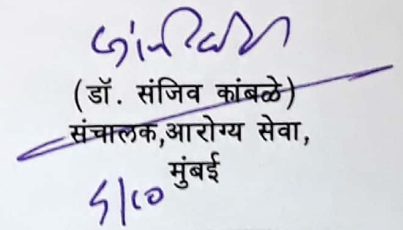 (डॉ. संजिव कांबळे)
संचालक,आरोग्य सेवा,
मुंबई
५/१०